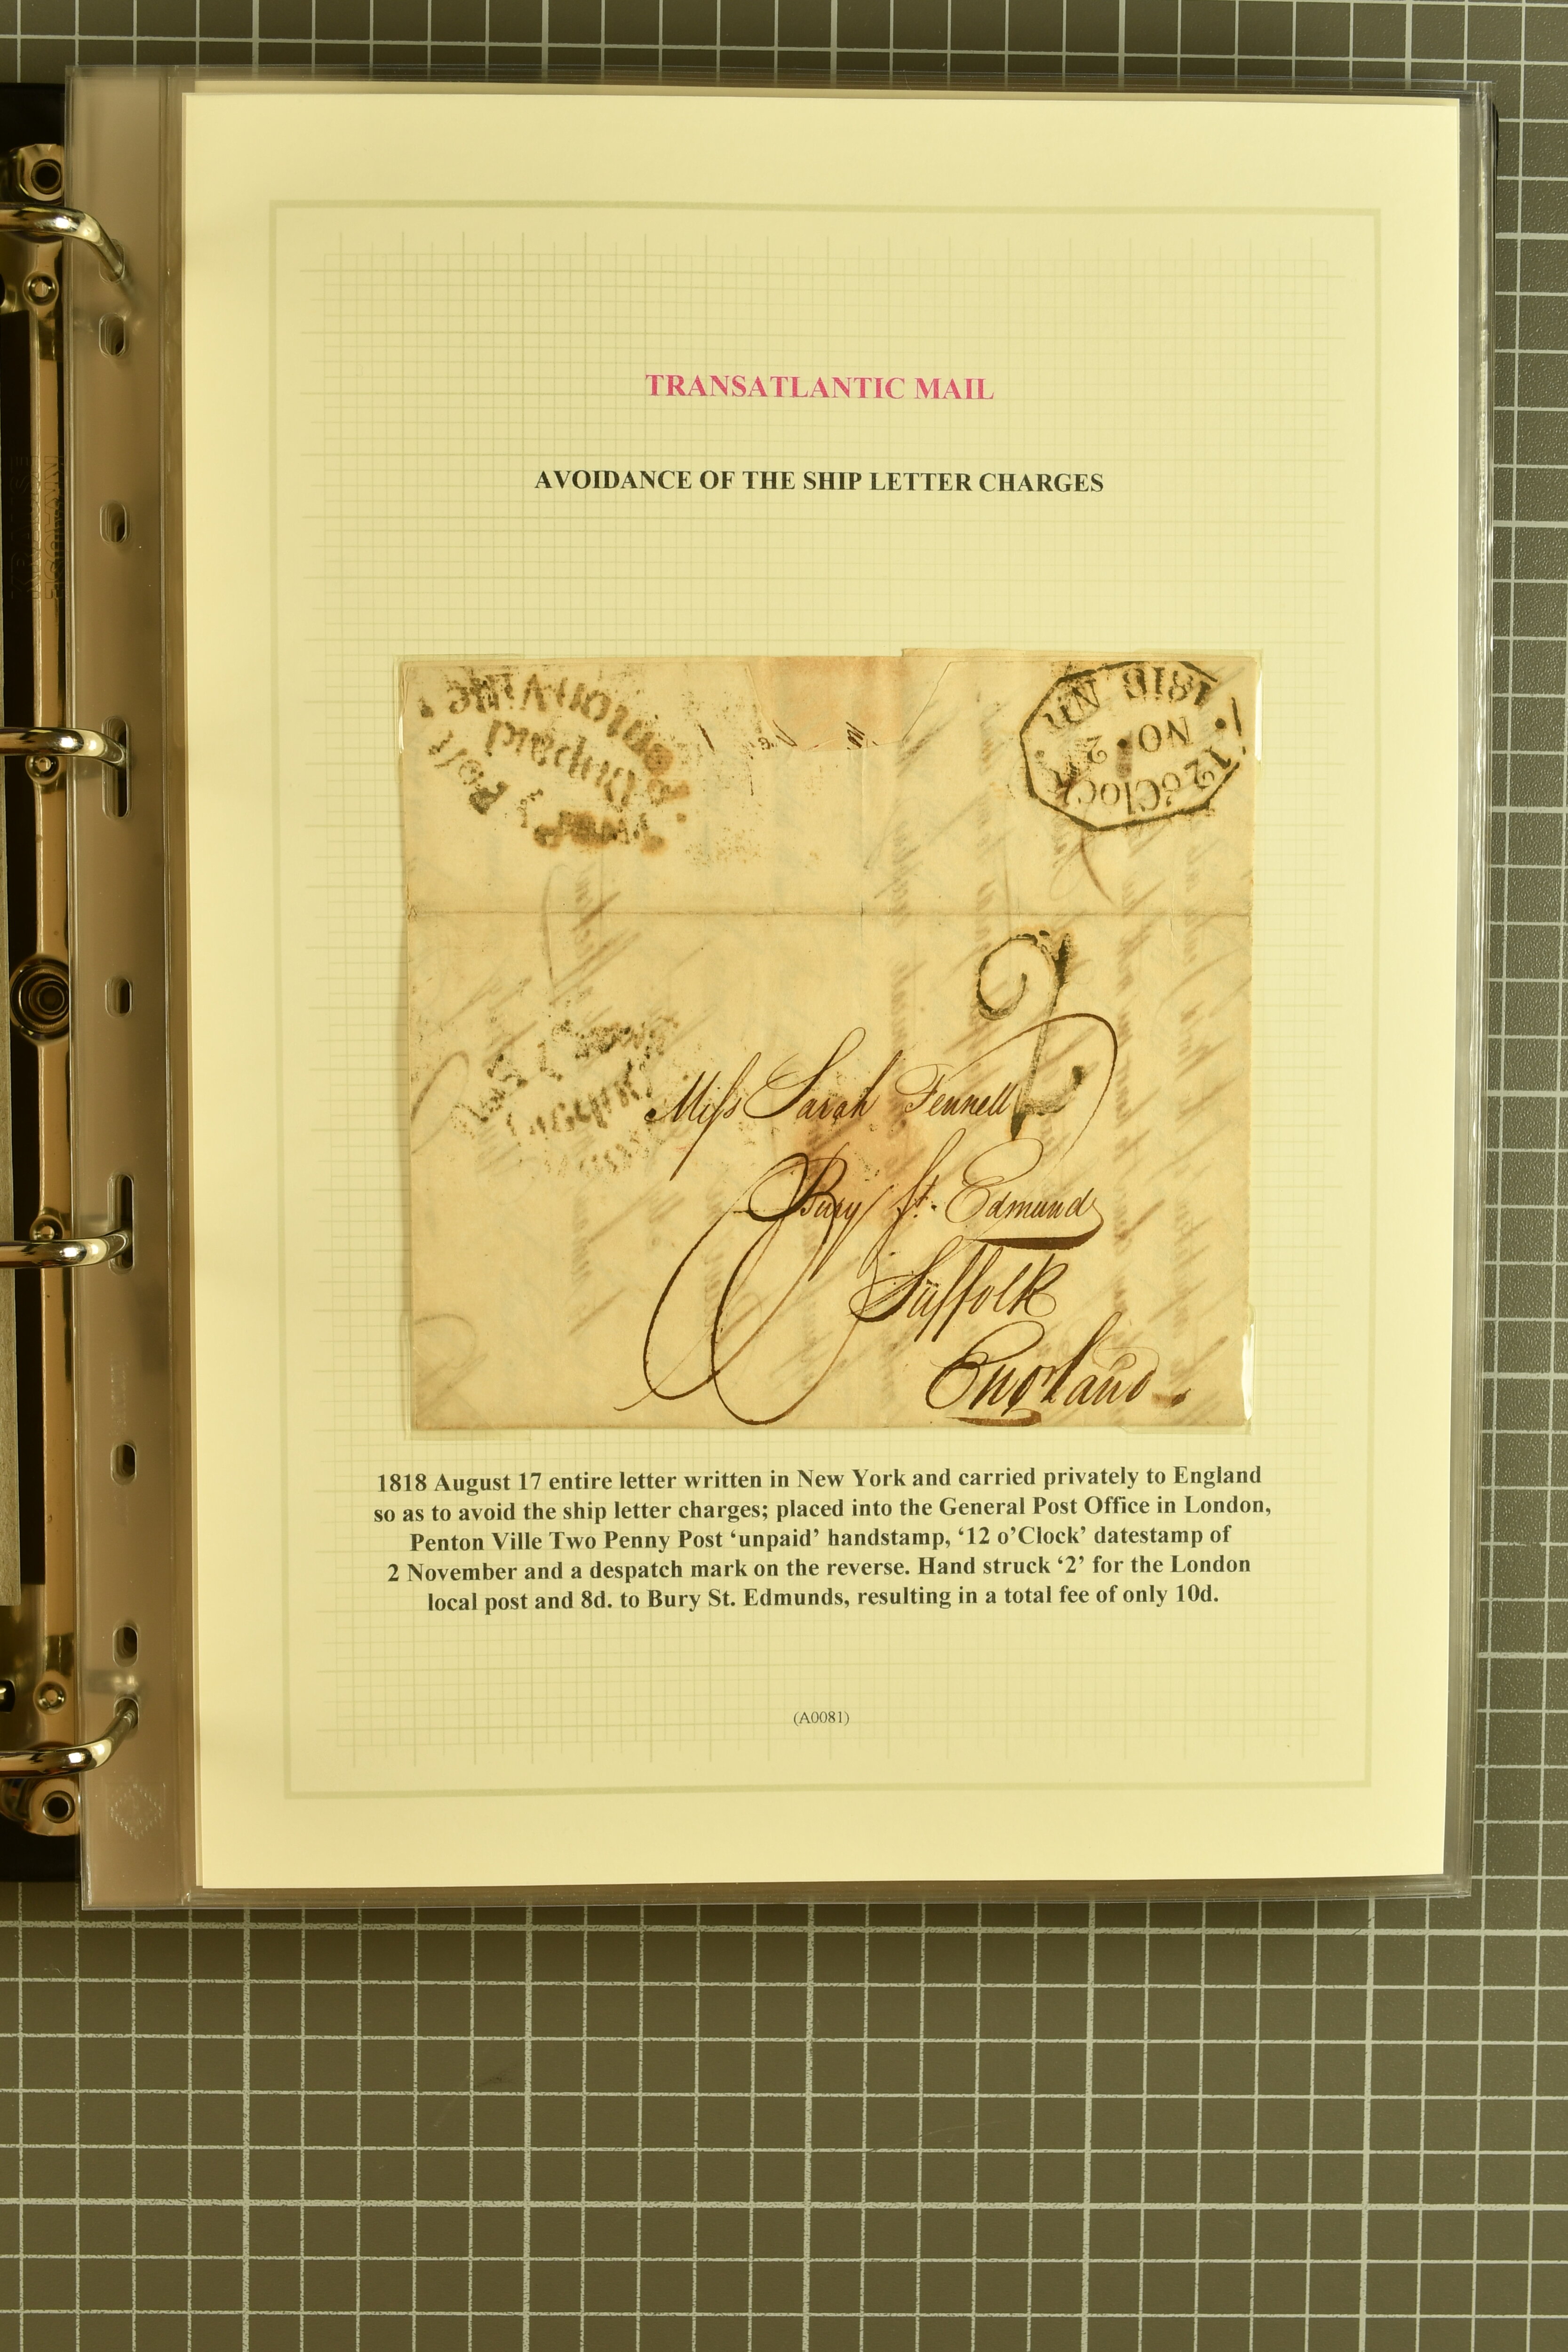 TRANSATLANTIC MAIL
AVOIDANCE OF THE SHIP LETTER CHARGES
Unpaid
Post
12 o'Clock
NO. 2
1818 NN
2
Miss Sarah Fennell
Bury St. Edmunds
Suffolk
England.
1818 August 17 entire letter written in New York and carried privately to England
so as to avoid the ship letter charges; placed into the General Post Office in London,
Penton Ville Two Penny Post ‘unpaid’ handstamp, ‘12 o’Clock’ datestamp of
2 November and a despatch mark on the reverse. Hand struck ‘2’ for the London
local post and 8d. to Bury St. Edmunds, resulting in a total fee of only 10d.
(A0081)